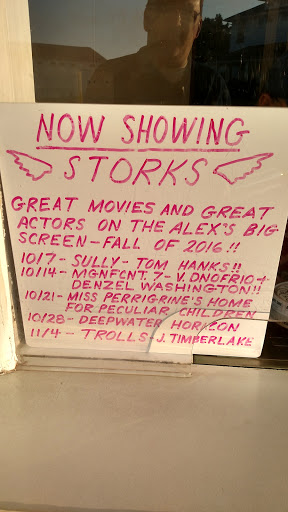 NOW SHOWING
STORKS
GREAT MOVIES AND GREAT
ACTORS ON THE ALEX'S BIG
SCREEN - FALL OF 2016!!
10/7 - SULLY - TOM HANKS!!
10/14 - MGNFCNT. 7 - V. DNOFRIO +
DENZEL WASHINGTON!!
10/21 - MISS PERRIGRINE'S HOME
FOR PECULIAR CHILDREN
10/28 - DEEPWATER HORIZON
11/4 - TROLLS - J. TIMBERLAKE